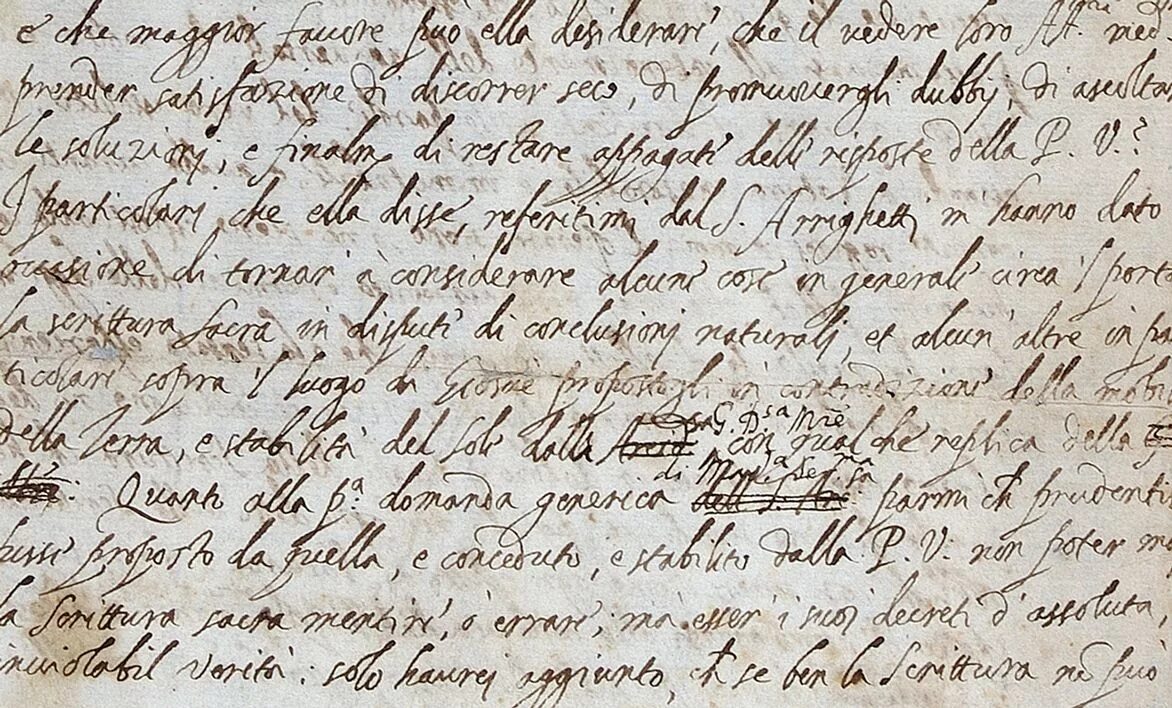 e che maggior favore può ella desiderare, che il vedere loro Alt.ze med
prender satisfazione di discorrer seco, di promuovergli dubbij, di ascolta
le soluzioni, e finalm.e di restare appagate delle risposte della P. V.?
I particolari che ella disse, referitimi dal S. Arrighetti m hanno dato
occasione di tornare à considerare alcune cose in generale circa 'l porta
la scrittura sacra in dispute di conclusioni naturali, et alcun' altre in par
ticolare sopra 'l luogo di Giosuè propostogli in contradizione della mobi
della Terra, e stabilità del Sole dalla G. D.sa M.re con qualche replica della
Quanto alla p.a domanda generica di Mad.a Ser.ma parmi ch' prudenti
fusse proposto da quella, e conceduto, e stabilito dalla P. V. non poter ma
la scrittura sacra mentire, ò errare; mà esser i suoi decreti d' assoluta,
inviolabil verità: solo haurei aggiunto, ch' se ben la Scrittura nõ può